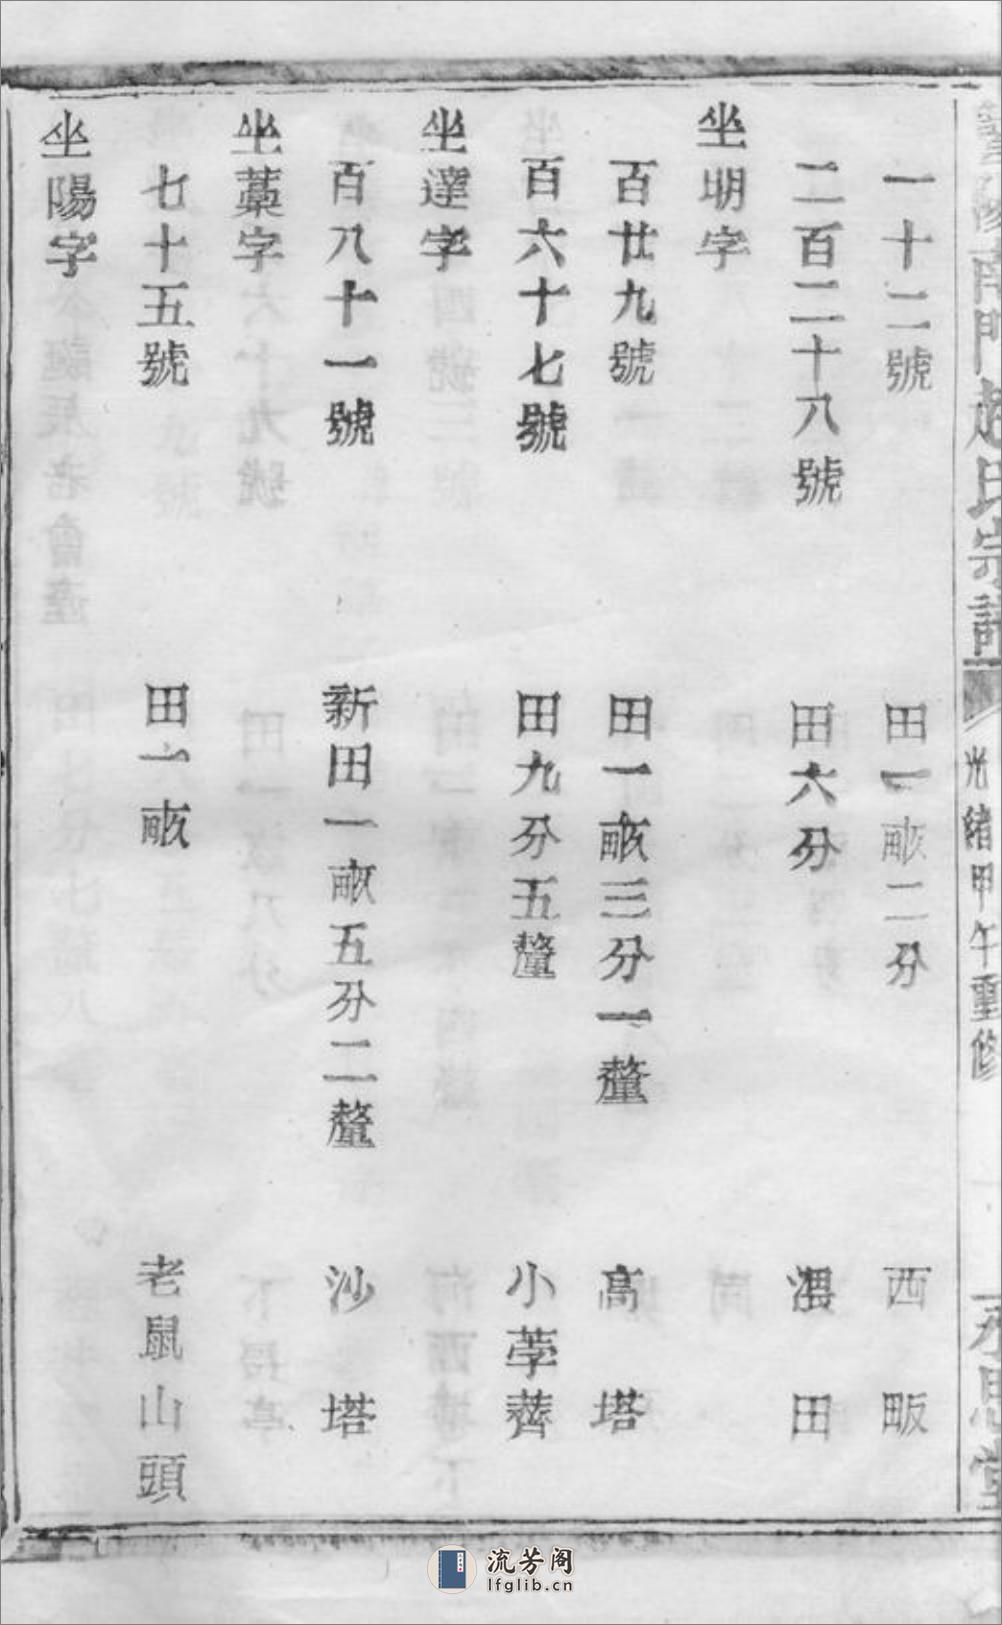 南門趙氏宗譜
光緒甲午重修
永思堂
一十二號 田一畝二分 西畈
二百二十八號 田六分 渨田
坐明字
百廿九號 田一畝三分一釐 高塔
百六十七號 田九分五釐 小荸薺
坐達字
百八十一號 新田一畝五分二釐 沙塔
坐藁字
七十五號 田一畝 老鼠山頭
坐陽字
流芳阁
lfglib.cn